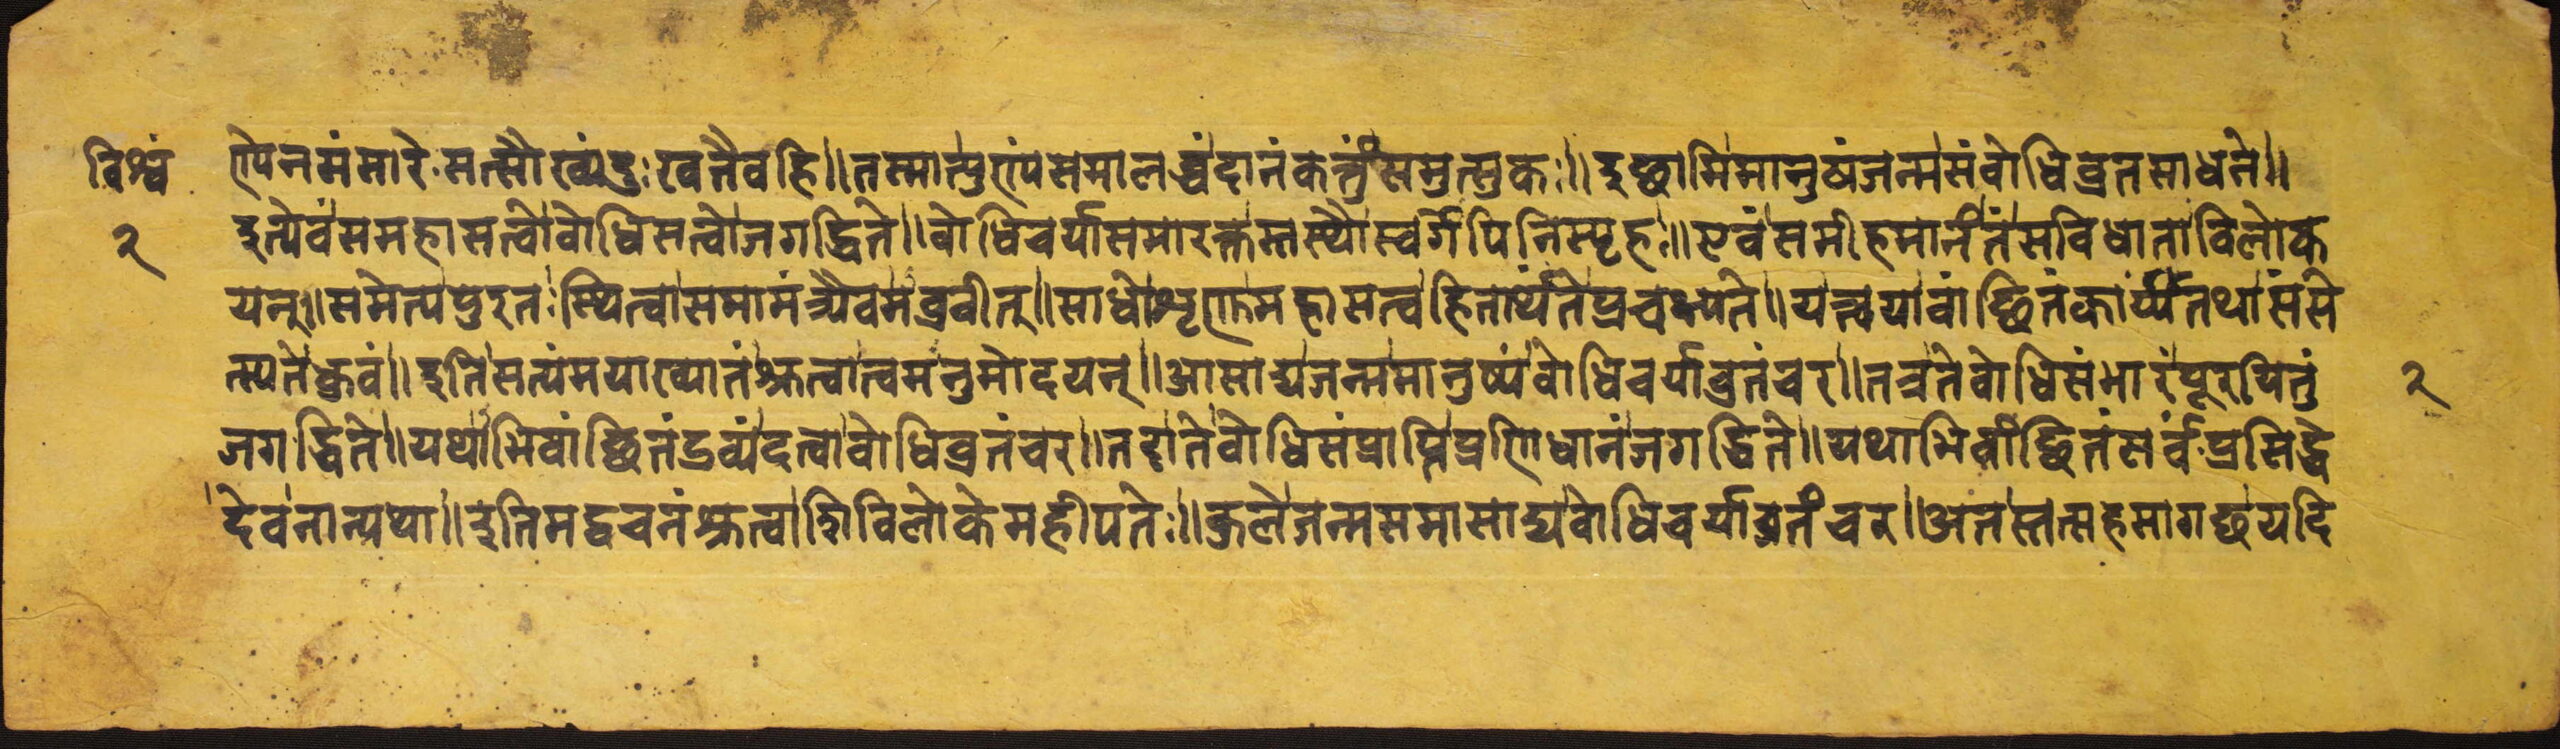 विश्वं णेपनमंसारे सत्सौख्यंदुःखतैवहि॥ तस्मात्पुण्यंसमालब्धंदानंकर्त्तुंसमुत्सुकः॥ इच्छामिमानुषंजन्मसंवोधिव्रतसाधने॥
२ इत्येवंसमहासत्वोवोधिसत्वोजगद्धिते॥ वोधिचर्यासमारक्तस्तस्थौस्वर्गेपिनिस्पृहः॥ एवंसमीहमानंतंसविधाताविलोक
यन्॥ समेत्यपुरतःस्थित्वासमामंत्र्यैवमव्रवीत्॥ साधोशृणुमहासत्वहितार्थंतेप्रचक्ष्यते॥ यत्त्वयावांछितंकार्य्यंतथासंसे
त्स्यतेध्रुवं॥ इतिसत्यंमयाख्यातंश्रुत्वात्वमनुमोदयन्॥ आसाद्यजन्ममानुष्यंवोधिचर्याव्रतंचर॥ तत्रतेवोधिसंभारंपूरयितुं २
जगद्धिते॥ यथाभिवांछितंद्रव्यंदत्वावोधिव्रतंचर॥ तदातेवोधिसंप्राप्तिप्रणिधानंजगद्धिते॥ यथाभिवांछितंसर्वंप्रसिद्धे
देवनान्यथा॥ इतिमद्वचनंश्रुत्वात्रिविलोकेमहीपतेः॥ कुलेजन्मसमासाद्यवोधिचर्याव्रतंचर॥ अतस्तत्सहसागच्छयदि